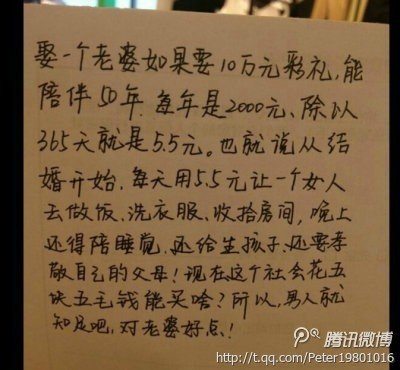 娶一个老婆如果要10万元彩礼,能
陪伴50年.每年是2000元、除以
365天就是5.5元。也就说从结
婚开始.每天用5.5元让一个女人
去做饭、洗衣服、收拾房间,晚上
还得陪睡觉.还给生孩子.还要孝
敬自己的父母!现在这个社会花五
块五毛钱能买啥?所以,男人就
知足吧,对老婆好点!
腾讯微博
http://t.qq.com/Peter19801016